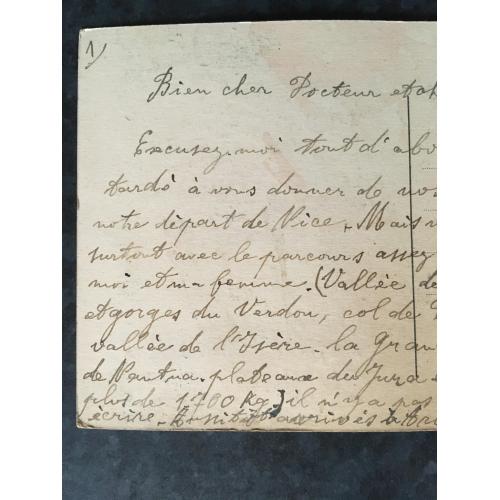 1)
Bien cher Docteur et
Excusez-moi tout d'abo
tardé à vous donner de nos
notre départ de Nice. Mais
surtout avec le parcours assez
moi et ma femme. (Vallée de
et gorges du Verdon, col de
vallée de l'Isère. la Gran
de Nantua. plateaux du Jura
plus de 1700 Kg.) il n'y a pas
écrire. Aussitôt arrivés à